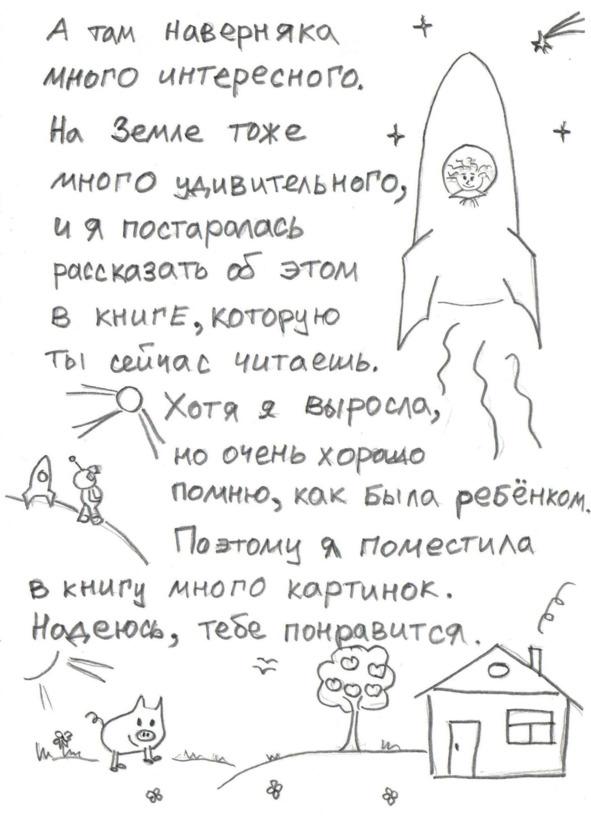 А там наверняка
много интересного.
На Земле тоже
много удивительного,
и я постаралась
рассказать об этом
в книге, которую
ты сейчас читаешь.
Хотя я выросла,
но очень хорошо
помню, как была ребёнком.
Поэтому я поместила
в книгу много картинок.
Надеюсь, тебе понравится.